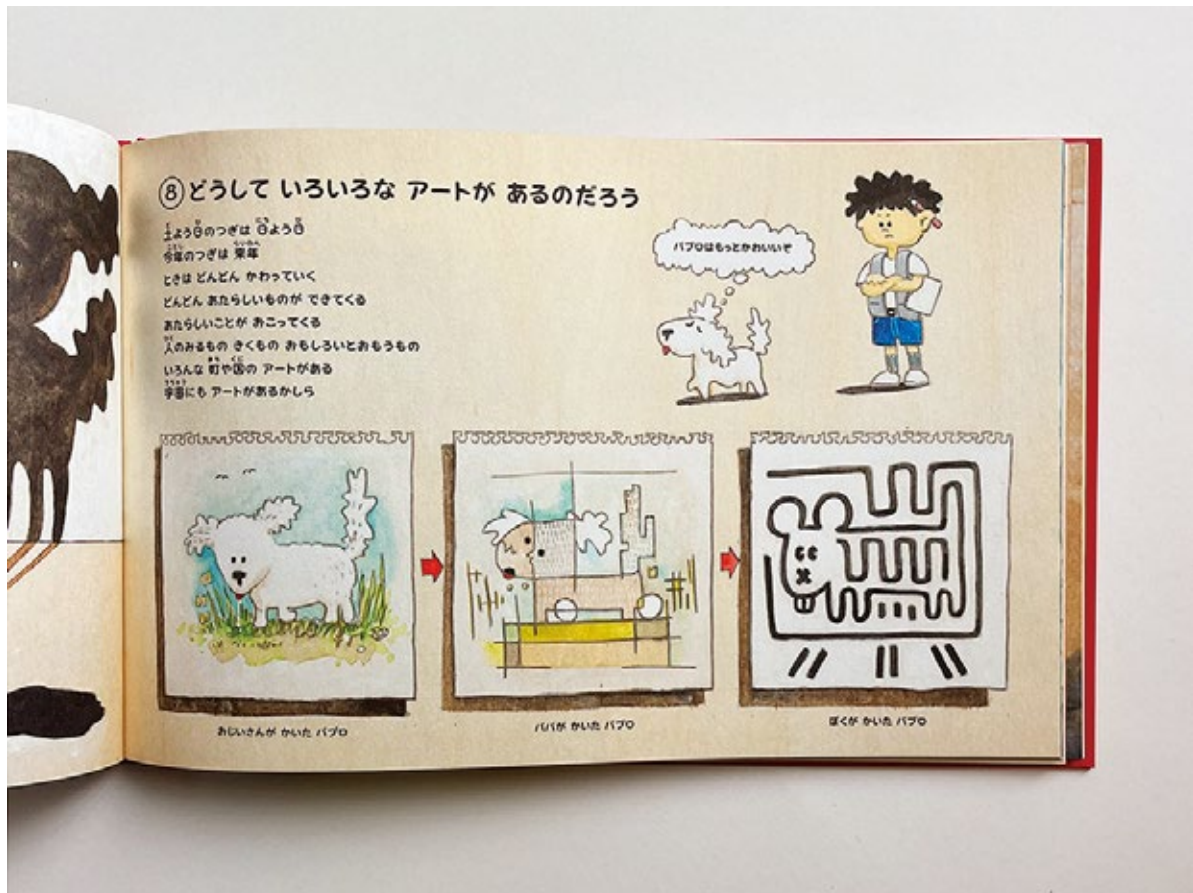 ⑧どうして いろいろな アートが あるのだろう
土よう日のつぎは 日よう日
今年のつぎは 来年
ときは どんどん かわっていく
どんどん あたらしいものが できてくる
あたらしいことが おこってくる
人のみるもの きくもの おもしろいとおもうもの
いろんな 町や国の アートがある
宇宙にも アートがあるかしら
パブロはもっとかわいいぞ
おじいさんが かいた パブロ
パパが かいた パブロ
ぼくが かいた パブロ